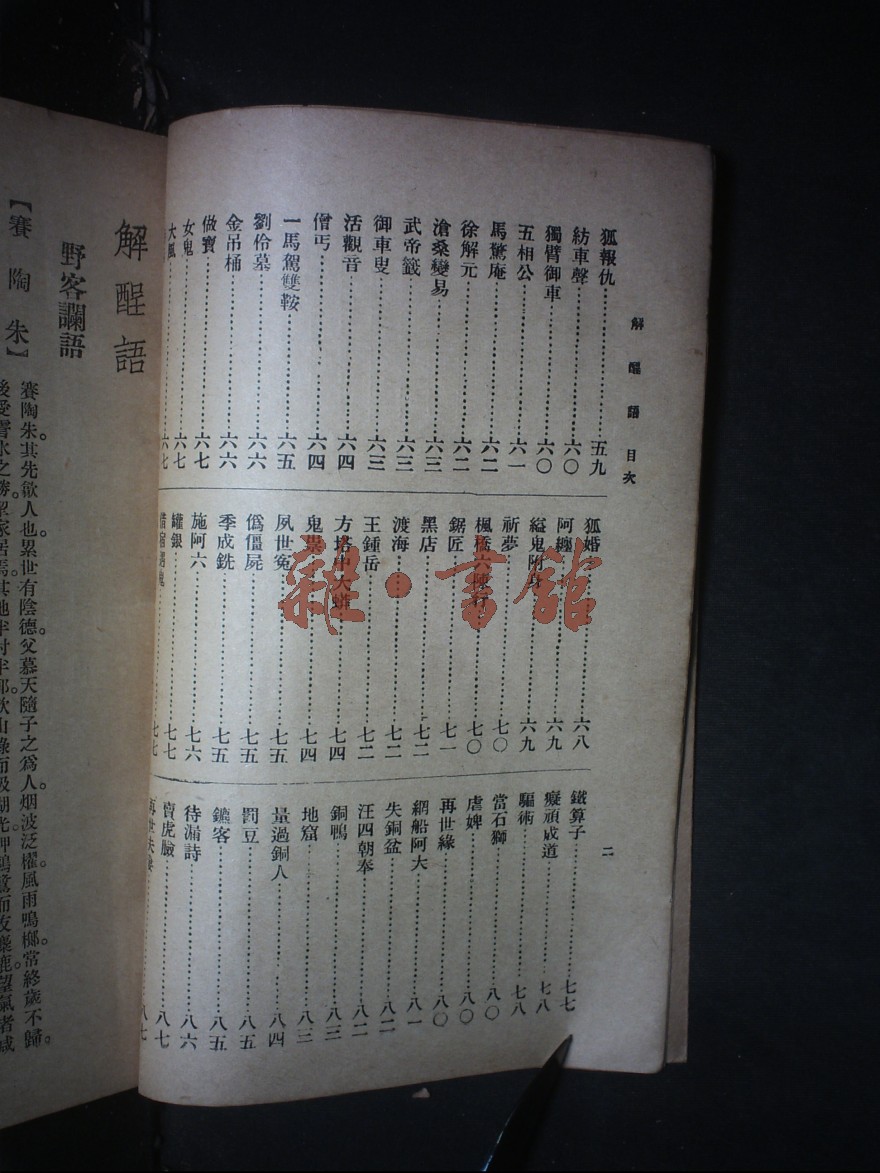 解酲語 目次
二
狐報仇……五九
紡車聲……六〇
獨臂御車……六〇
五相公……六一
馬驚庵……六二
徐解元……六二
滄桑變易……六三
武帝籤……六三
御車叟……六三
活觀音……六四
僧丐……六四
一馬駕雙鞍……六五
劉伶墓……六六
金吊桶……六六
做寶……六七
女鬼……六七
大風……六七
狐婚……六八
阿纏……六九
縊鬼附身……六九
祈夢……七〇
楓橋六陳行……七〇
鋸匠……七一
黑店……七二
渡海……七二
王鍾岳……七二
方塔中大蟒……七四
鬼祟……七四
夙世冤……七五
僞僵屍……七五
季成銑……七五
施阿六……七六
罐銀……七七
七七
鐵算子……七七
癡頑成道……七八
驅術……七八
當石獅……八〇
虐婢……八〇
再世緣……八〇
網船阿大……八一
失銅盆……八二
汪四朝奉……八二
銅鴨……八三
地窟……八三
量過銅人……八四
罰豆……八五
鑣客……八五
待漏詩……八六
賣虎臉……八七
再世夫妻……八七
雜·書館
解酲語
野客讕語
【賽陶朱】
賽陶朱。其先歙人也。累世有陰德。父慕天隨子之爲人。烟波泛櫂。風雨鳴榔。常終歲不歸。
後愛霅水之勝。